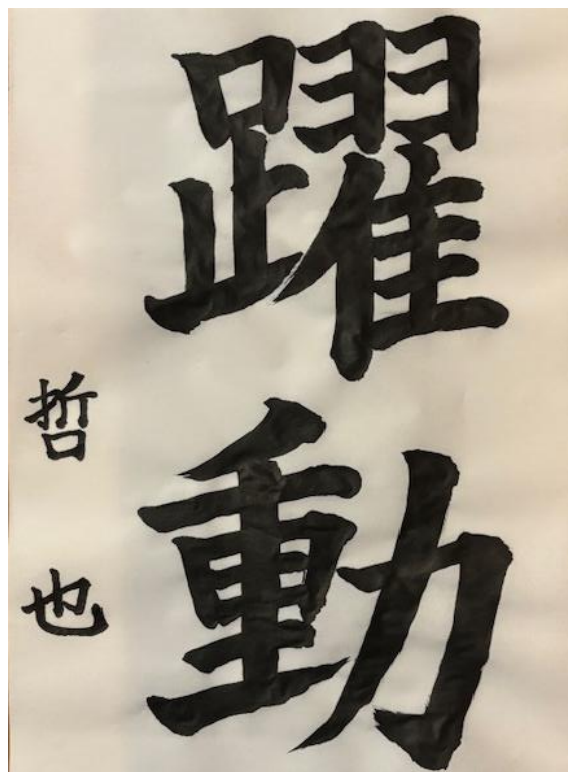 躍動
哲也